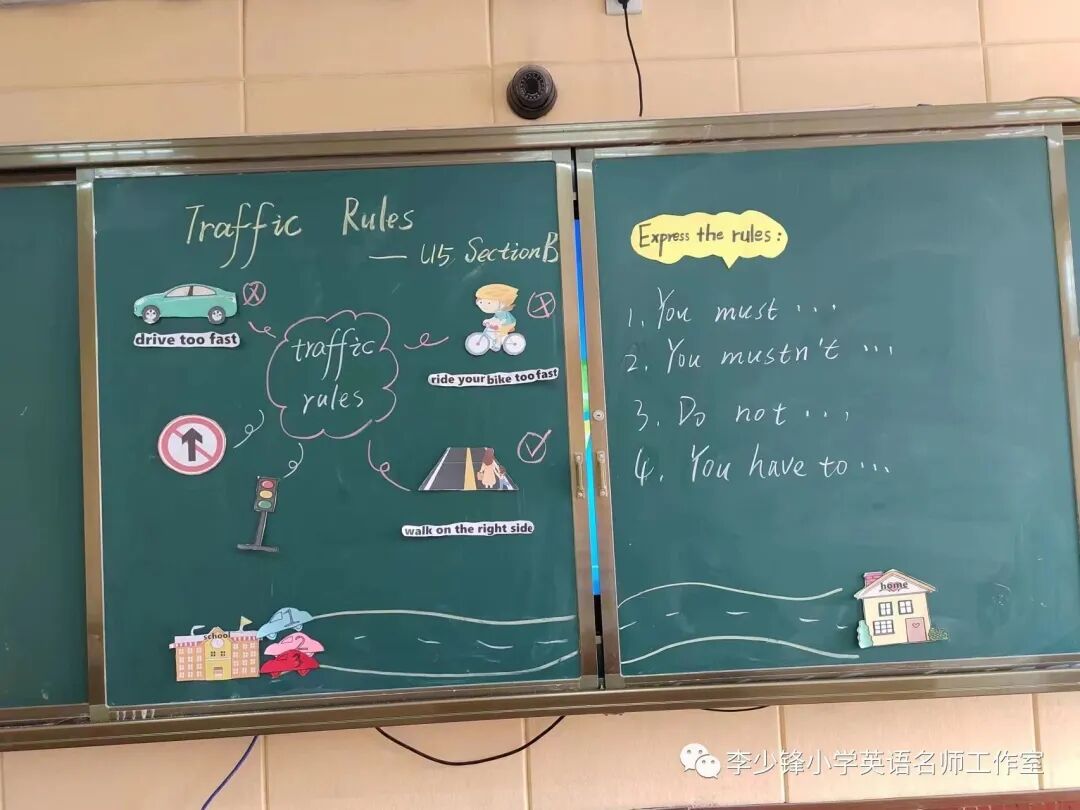 Traffic Rules
— U5 Section B
drive too fast
traffic
rules
ride your bike too fast
walk on the right side
school
1
2
3
Express the rules:
1. You must ...
2. You mustn't ...
3. Do not ...
4. You have to ...
home
李少锋小学英语名师工作室